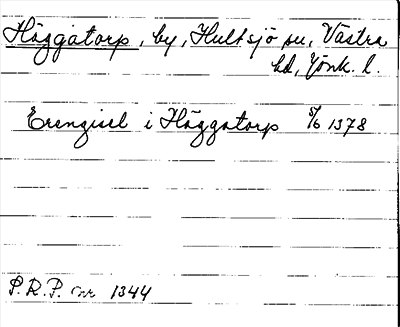 Häggatorp, by, Hultsjö sn, Västra
hd, Jönk. l.
Erengisel i Häggatorp 5/6 1378
P.R.P. nr 1344